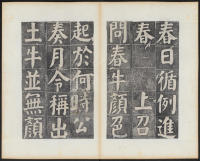 春日循例進
春〻上召
問春牛顔色
起於何時公
奏月令稱出
土牛並無顔